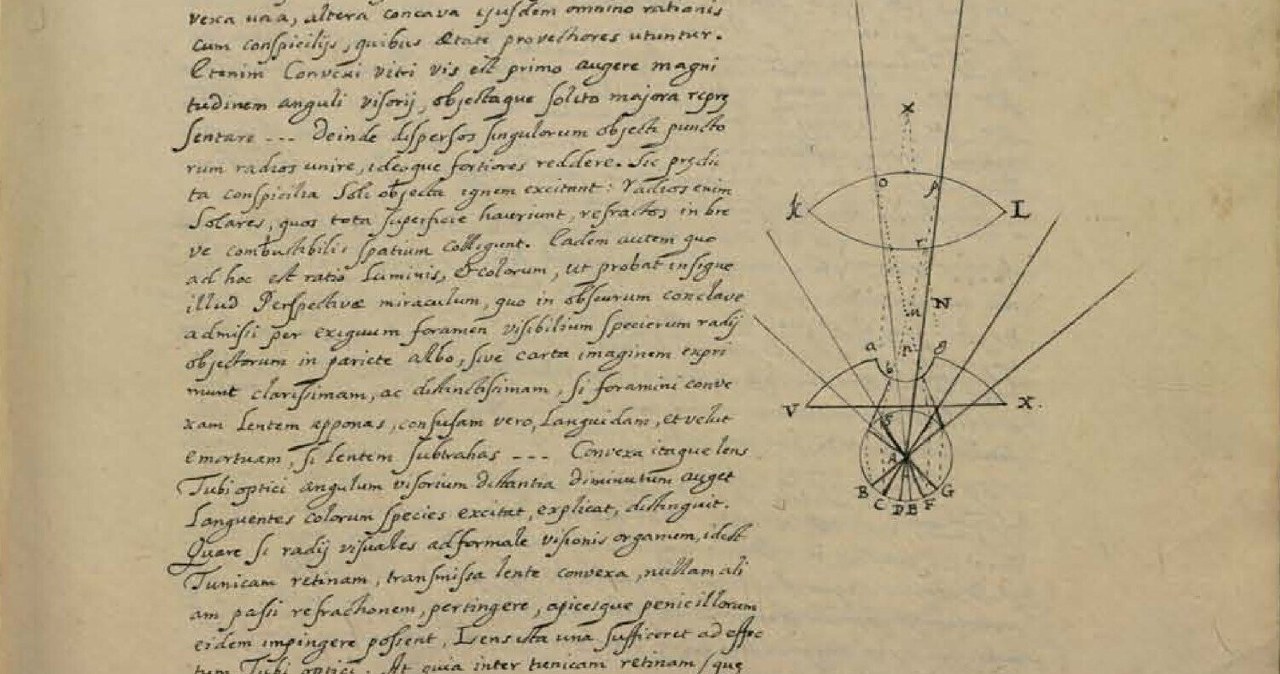 vexa una, altera concava ejusdem omnino rationis
cum conspicilijs, quibus ætate provectiores utuntur.
Etenim Convexi vitri vis est primo augere magni
tudinem anguli visorij, objectaque solito majora repræ
sentare --- Deinde dispersos singulorum objecti puncto
rum radios unire, ideoque fortiores reddere. Sic prædic
ta conspicilia Soli objecta ignem excitant: radios enim
Solares, quos tota superficie hauriunt, refractos in bre
ve combustibilis spatium colligunt. Eadem autem quo
ad hoc est ratio Luminis, & colorum, ut probat insigne
illud Perspectivæ miraculum, quo in obscurum conclave
admissi per exiguum foramen visibilium specierum radij
objectorum in pariete albo, sive carta imaginem expri
munt clarissimam, ac distinctissimam, si foramini conve
xam Lentem apponas, confusam vero, Languidam, et velut
emortuam, si lentem subtrahas --- Convexa itaque lens
Tubi optici angulum visorium distantia diminutum auget
Languentes colorum species excitat, explicat, distinguit.
Quare si radij visuales ad formale visionis organum, idest
Tunicam retinam, transmissa lente convexa, nullam ali
am passi refractionem, pertingere, apicesque penicillorum
eidem impingere possent, Lens ista una sufficeret ad effec
tum Tubi optici. At quia inter tunicam retinam (quæ
x
o p
K L
r
N
n
a
V X.
S
A
B G
C D E F